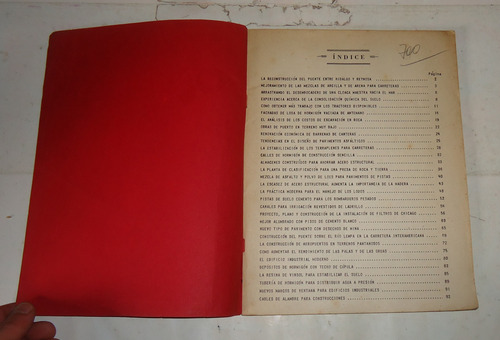 700
ÍNDICE
Página
LA RECONSTRUCCION DEL PUENTE ENTRE HIDALGO Y REYNOSA 2
MEJORAMIENTO DE LAS MEZCLAS DE ARCILLA Y DE ARENA PARA CARRETERAS
ARRASTRANDO EL DESEMBOCADERO DE UNA CLOACA MAESTRA HACIA EL MAR
EXPERIENCIA ACERCA DE LA CONSOLIDACION QUIMICA DEL SUELO
COMO OBTENER MAS TRABAJO CON LOS TRACTORES DISPONIBLES 11
FACHADAS DE LOSA DE HORMIGON VACIADA DE ANTEMANO
EL ANALISIS DE LOS COSTOS DE EXCAVACION EN ROCA
OBRAS DE PUERTO EN TERRENO MUY BAJO 22
RENOVACION ECONOMICA DE BARRERAS DE CANTERAS
TENDENCIAS EN EL DISEÑO DE PAVIMENTO ASFALTICO 30
LA ESTABILIZACION DE LOS TERRAPLENES PARA CARRETERAS
CALLES DE HORMIGON DE CONSTRUCCION SENCILLA
ALMACENES CONSTRUIDOS PARA AHORRAR ACERO ESTRUCTURAL
LA PLANTA DE CLASIFICACION PARA UNA PRESA DE ROCA Y TIERRA
MEZCLA DE ASFALTO Y POLVO DE LOES PARA PAVIMENTO DE PISTAS 40
LA ESCASEZ DE ACERO ESTRUCTURAL AUMENTA LA IMPORTANCIA DE LA MADERA 43
LA PRACTICA MODERNA PARA EL MANEJO DE LOS LODOS
PISTAS DE SUELO CEMENTO PARA LOS BOMBARDEROS PESADOS 53
CANALES PARA IRRIGACION REVESTIDOS DE LADRILLO
PROYECTO, PLANO Y CONSTRUCCION DE LA INSTALACION DE FILTROS DE CHICAGO
MEJOR ALUMBRADO CON PISOS DE CEMENTO BLANCO
NUEVO TIPO DE PAVIMENTO CON DESECHOS DE MINA
CONSTRUCCION DEL PUENTE SOBRE EL RIO LEMPA EN LA CARRETERA INTERAMERICANA
LA CONSTRUCCION DE AEROPUERTOS EN TERRENOS PANTANOSOS
COMO AUMENTAR EL RENDIMIENTO DE LAS PALAS Y DE LAS GRUAS 75
EL EDIFICIO INDUSTRIAL MODERNO
DEPOSITOS DE HORMIGON CON TECHO DE CUPULA
LA RESINA DE VINSOL PARA ESTABILIZAR EL SUELO
TUBERIA DE HORMIGON PARA DISTRIBUIR AGUA A PRESION
NUEVOS MARCOS DE VENTANA PARA EDIFICIOS INDUSTRIALES 91
CARLES DE ALAMBRE PARA CONSTRUCCIONES